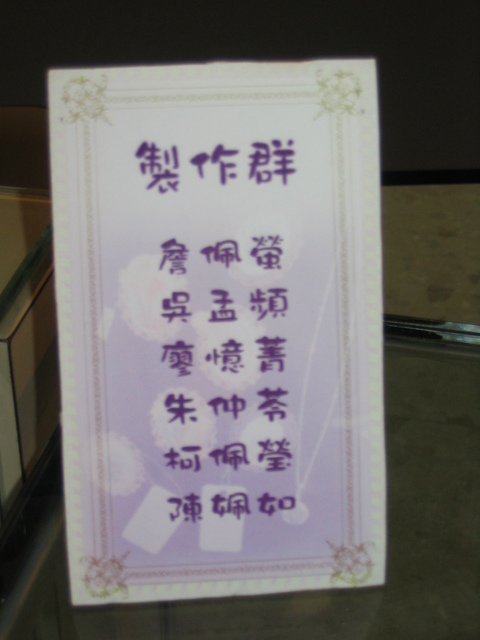 製作群
詹佩螢
吳孟頻
廖憶菁
朱仲苓
柯佩瑩
陳姵如